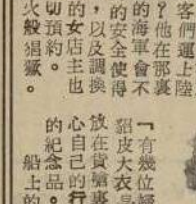 客們運上陸
？他在那裏
的海軍會不
的安全使得
，以及調換
的女店主也
切預約。
火般猖獗。
「有幾位
貂皮大衣是
放在貨艙裏
心自己的行
的紀念品。
船上的